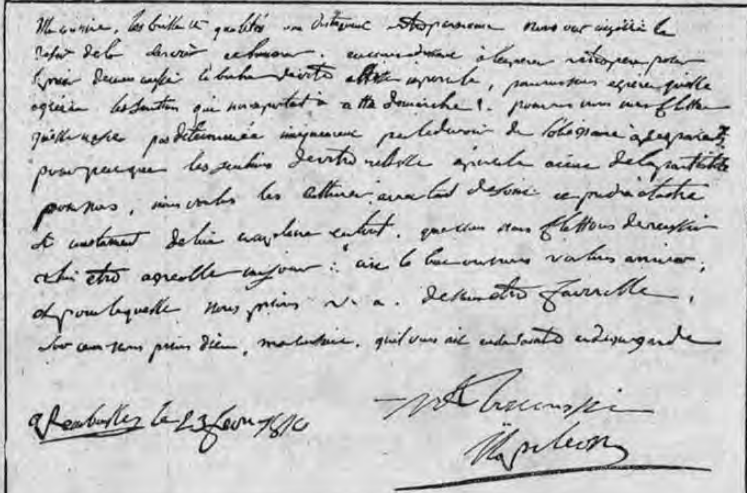 Ma cousine, les brillantes qualités qui distinguent votre personne nous ont inspiré le
désir de la servir et honorer. en nous adressant à l'empereur votre pere pour
le prier de nous confier le bonheur de votre altesse imperiale, pouvons nous esperer quelle
agréera les sentimens qui nous portent à cette démarche ! pouvons nous nous flatter
quelle ne sera pas determinée uniquement par le devoir de l'obéissance à ses parens
pour peu que les sentimens de votre altesse imperiale aient de la partialité
pour nous, nous voulons les cultiver avec tant de soin et prendre à tache
si constament de lui complaire en tout. que nous nous flattons de reussir
à lui etre agreable un jour : c'est le but ou nous voulons arriver,
et pour lequelle nous prions v. a. de nous etre favorable,
sur ce nous prions dieu, ma cousine. quil vous ait en sa sainte et digne garde
a Rambouillet le 23 fevr 1810
Napoleon